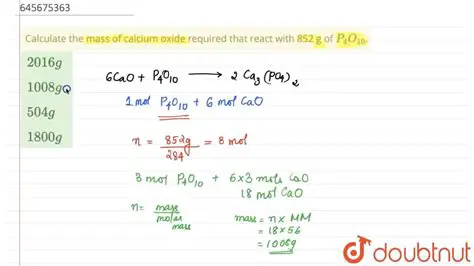 645675363
Calculate the mass of calcium oxide required that react with 852 g of P₄O₁₀.
2016g
1008g
504g
1800g
6CaO + P₄O₁₀ ⟶ 2 Ca₃(PO₄)₂
1 mol P₄O₁₀ + 6 mol CaO
n = 852g / 284 = 3 mol
3 mol P₄O₁₀ + 6×3 mols CaO
18 mol CaO
n = mass / molar mass
mass = n × MM
= 18 × 56
= 1008g
doubtnut